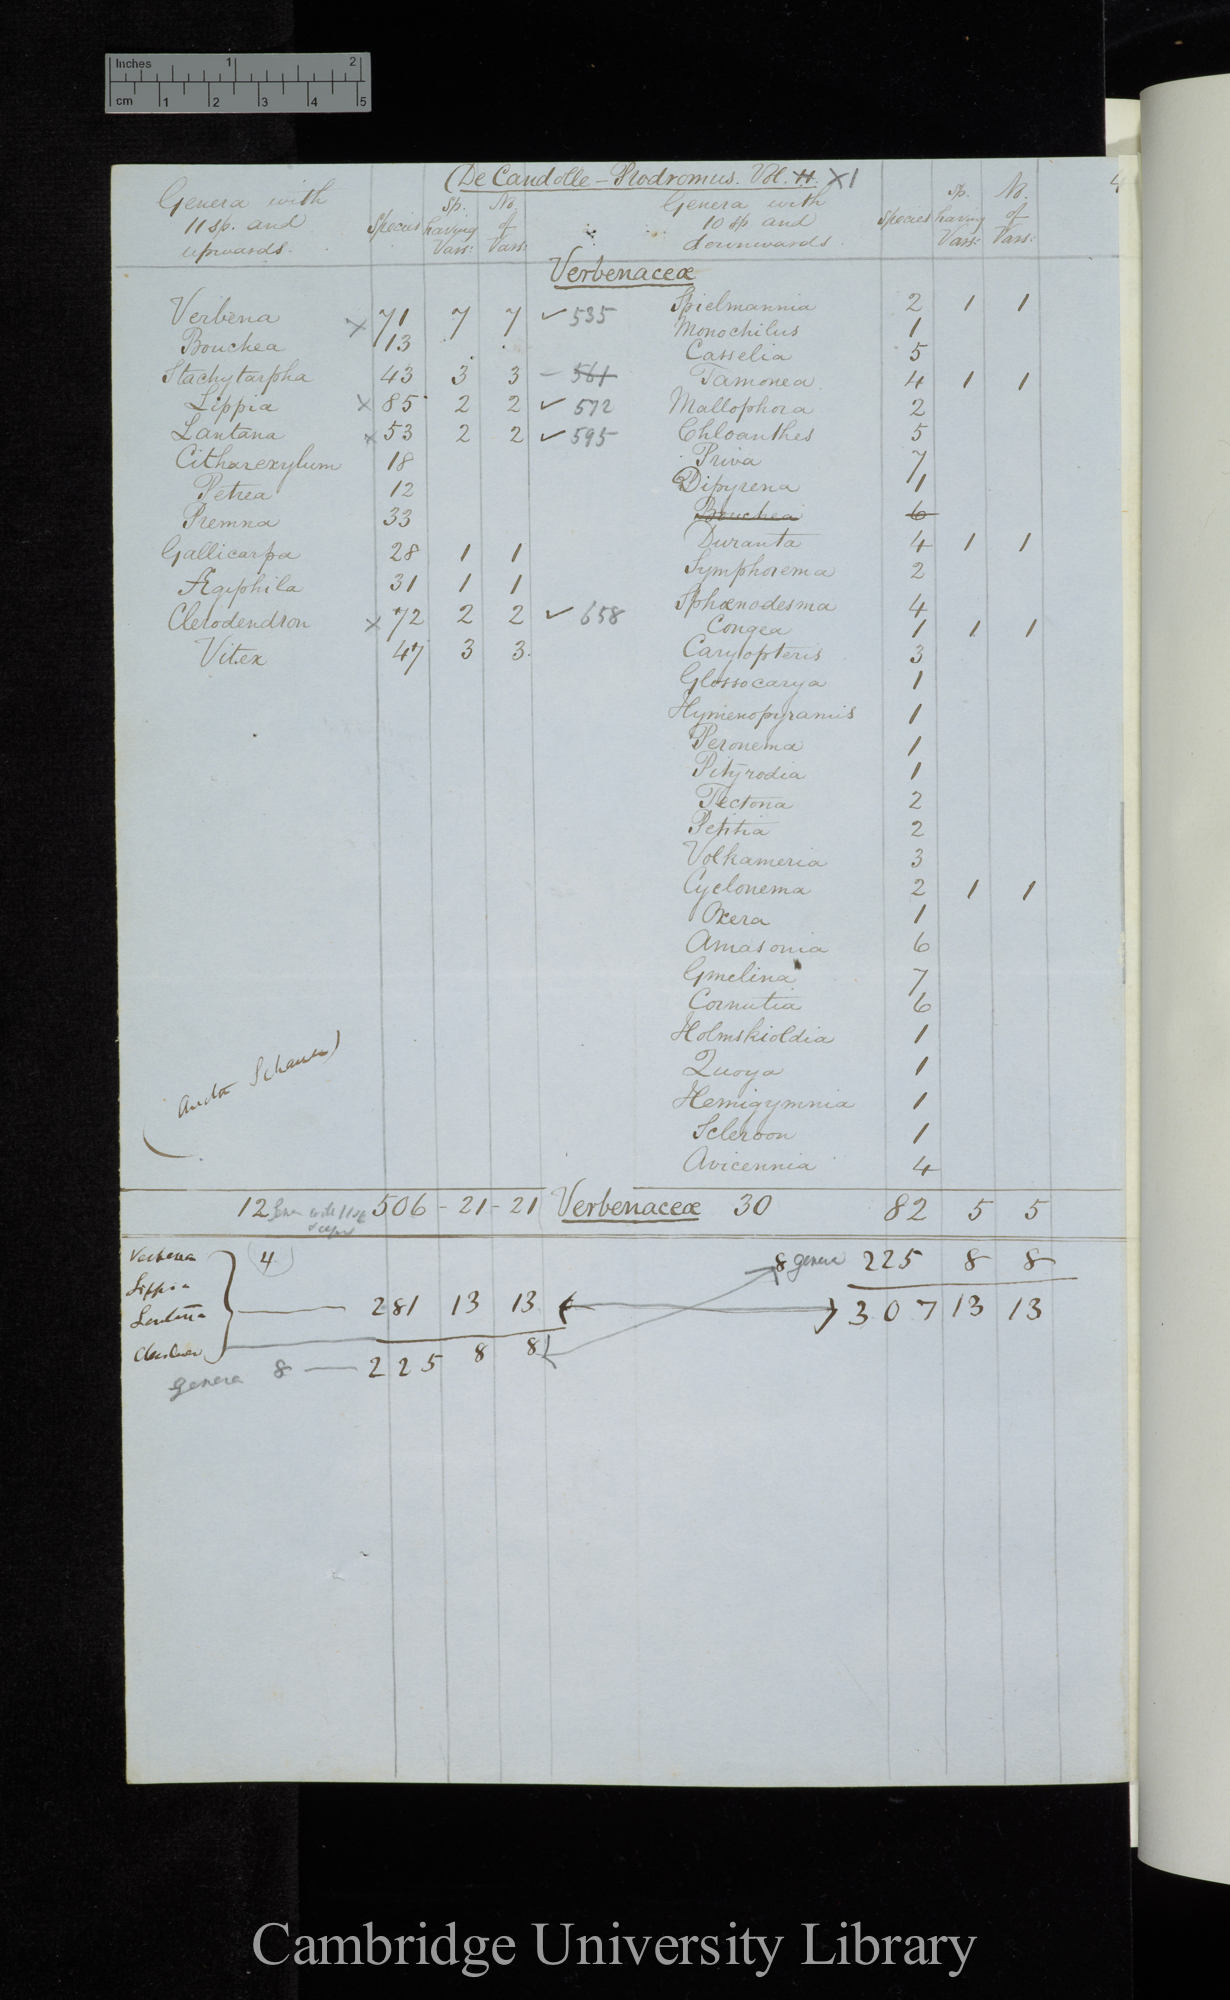 Inches 1 2
cm 1 2 3 4 5
(De Candolle – Prodromus. Vol. 11. XI
4
Genera with 11 sp. and upwards. Species sp. having Vars: No. of Vars:
Genera with 10 sp and downwards. Species sp. having Vars: No. of Vars:
Verbenaceæ
Verbena x 71 7 7 ✓ 535
Bouchea 13
Stachytarpha 43 3 3 – 561
Lippia x 85 2 2 ✓ 572
Lantana x 53 2 2 ✓ 595
Citharexylum 18
Petrea 12
Premna 33
Gallicarpa 28 1 1
Ægiphila 31 1 1
Clerodendron x 72 2 2 ✓ 658
Vitex 47 3 3.
Spielmannia 2 1 1
Monochilus 1
Casselia 5
Tamonea 4 1 1
Mallophora 2
Chloanthes 5
Priva 7
Dipyrena 1
Bouchea 6
Duranta 4 1 1
Symphorema 2
Sphænodesma 4
Congea 1 1 1
Caryopteris 3
Glossocarya 1
Hymenopyramis 1
Peronema 1
Pityrodia 1
Tectona 2
Petitia 2
Volkameria 3
Cyclonema 2 1 1
Oxera 1
Amasonia 6
Gmelina 7
Cornutia 6
Holmskioldia 1
Quoya 1
Hemigymnia 1
Scleroon 1
Avicennia 4
(Auctor Schauer)
12 Gen with 11 sp & upw 506 - 21 - 21 Verbenaceæ 30 82 5 5
Verbena 4 8 genera 225 8 8
Lippia
Lantana 281 13 13 307 13 13
Cleroden
genera 8 — 225 8 8
Cambridge University Library